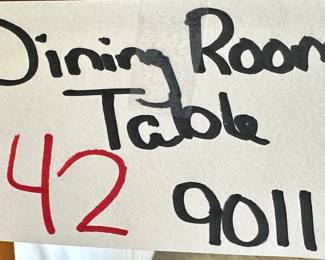 Dining Room
Table
42 9011